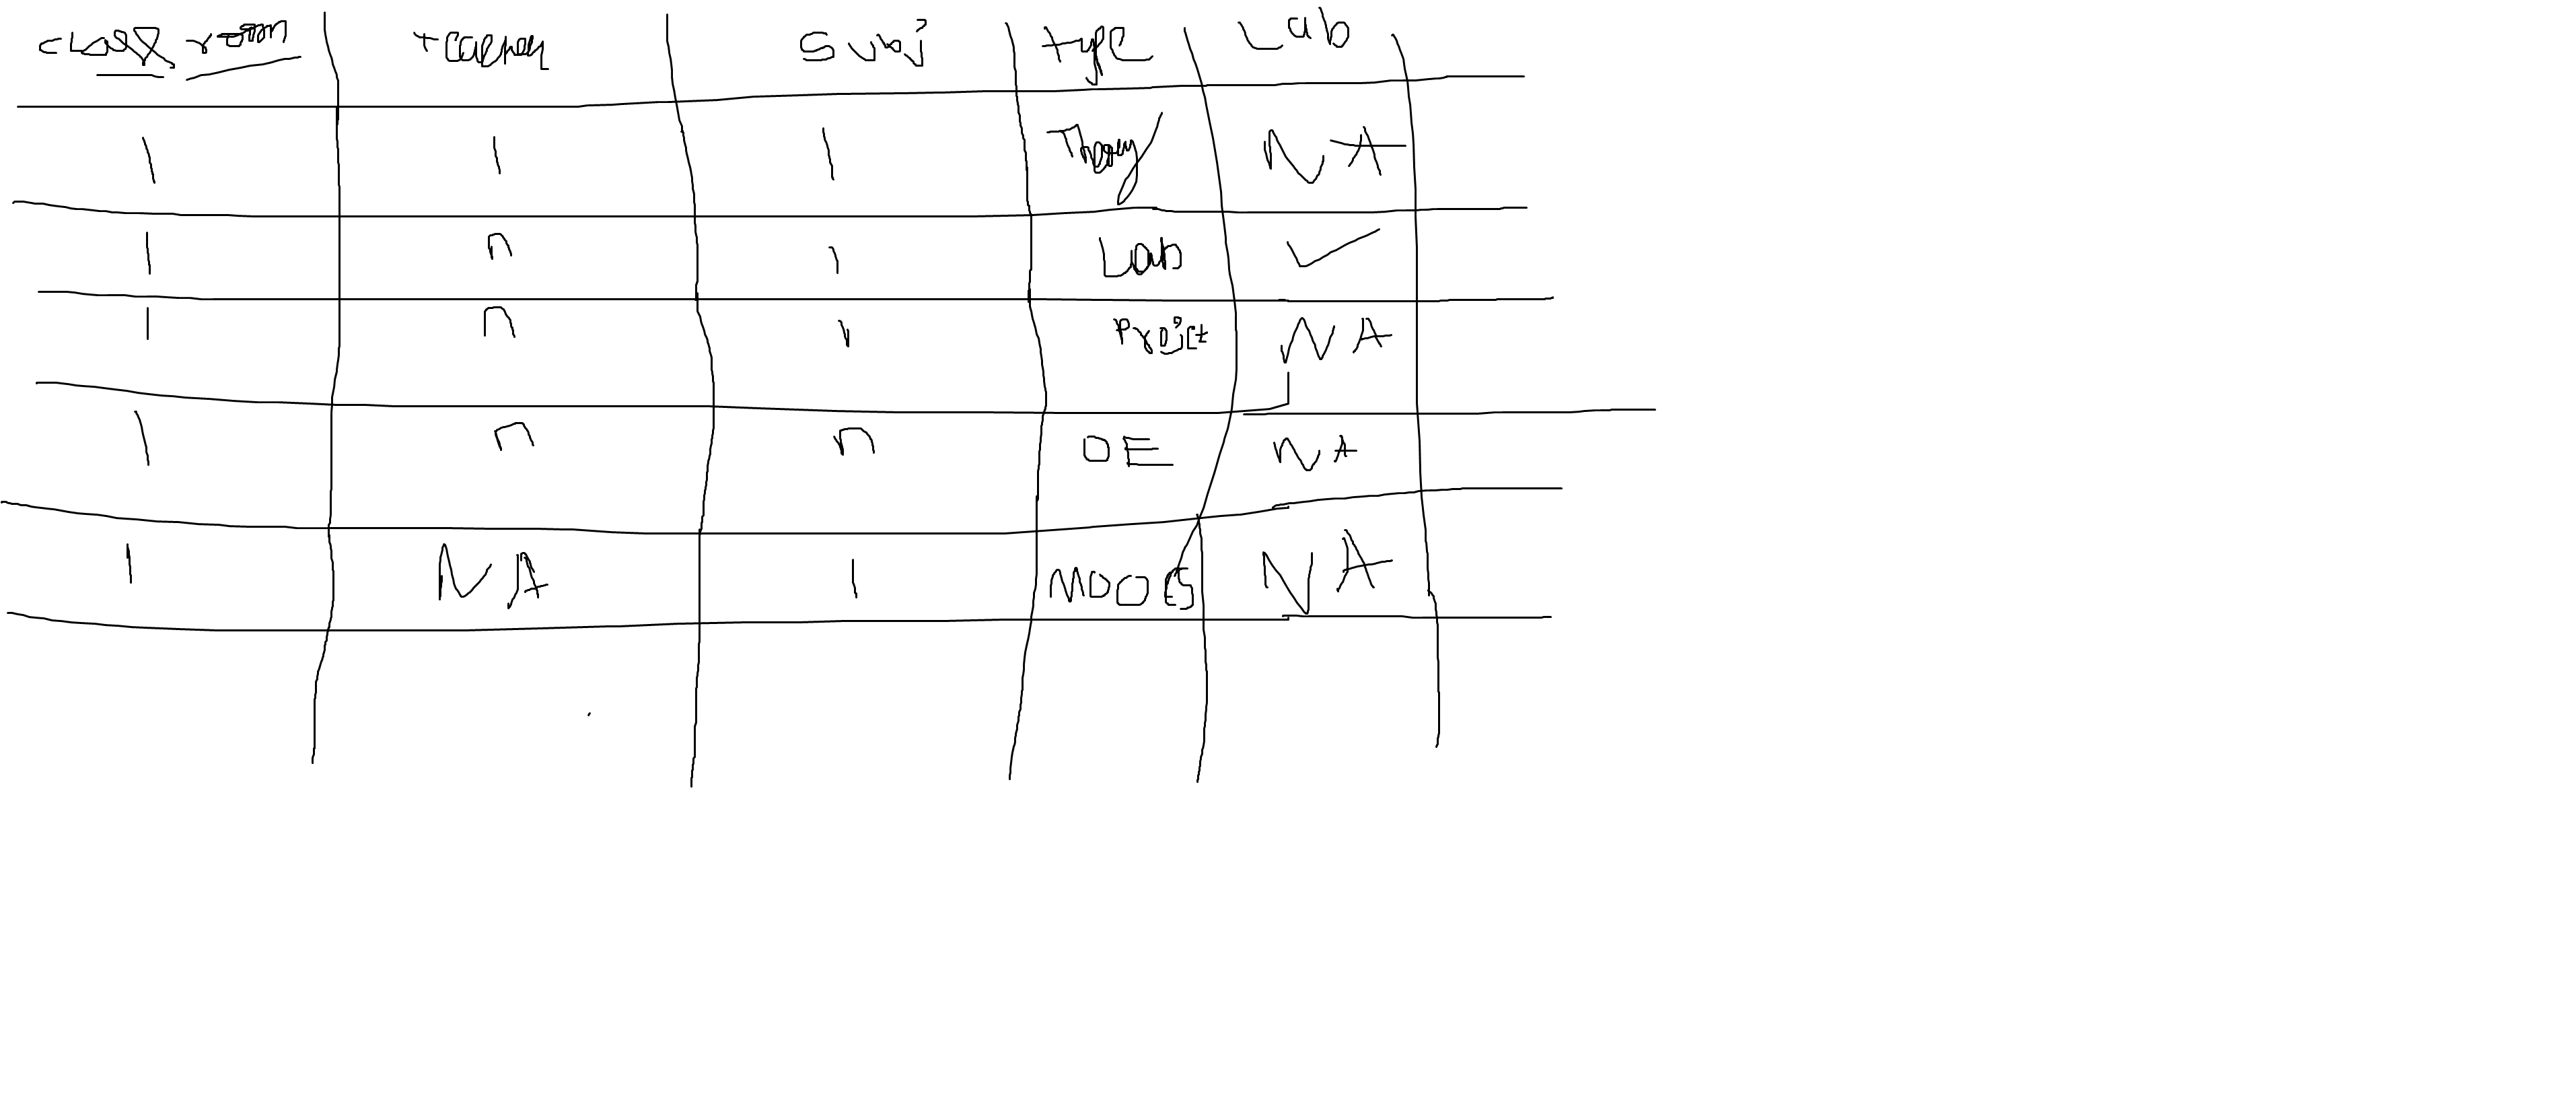 class room teacher subj type Lab
1 1 1 Theory NA
1 n 1 Lab ✓
1 n 1 Project NA
1 n n OE NA
1 NA 1 MOOCS NA